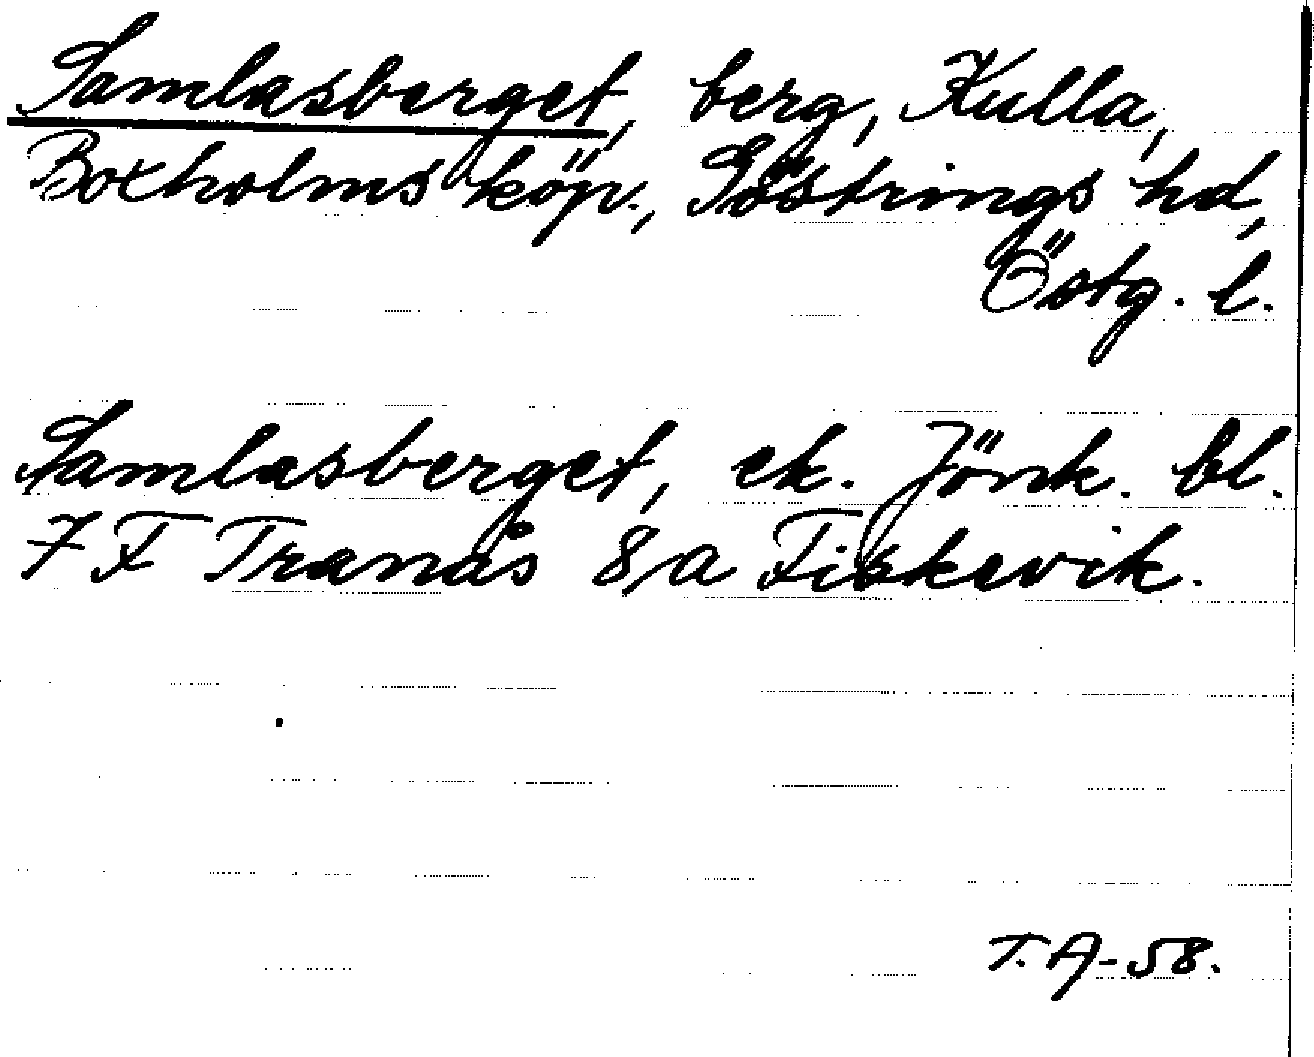 Samlasberget, berg, Kulla,
Boxholms köp., Göstrings hd,
Östg. l.
Samlasberget, ek. Jönk. bl.
7 F Tranås 8a Fiskevik.
T. A-58.